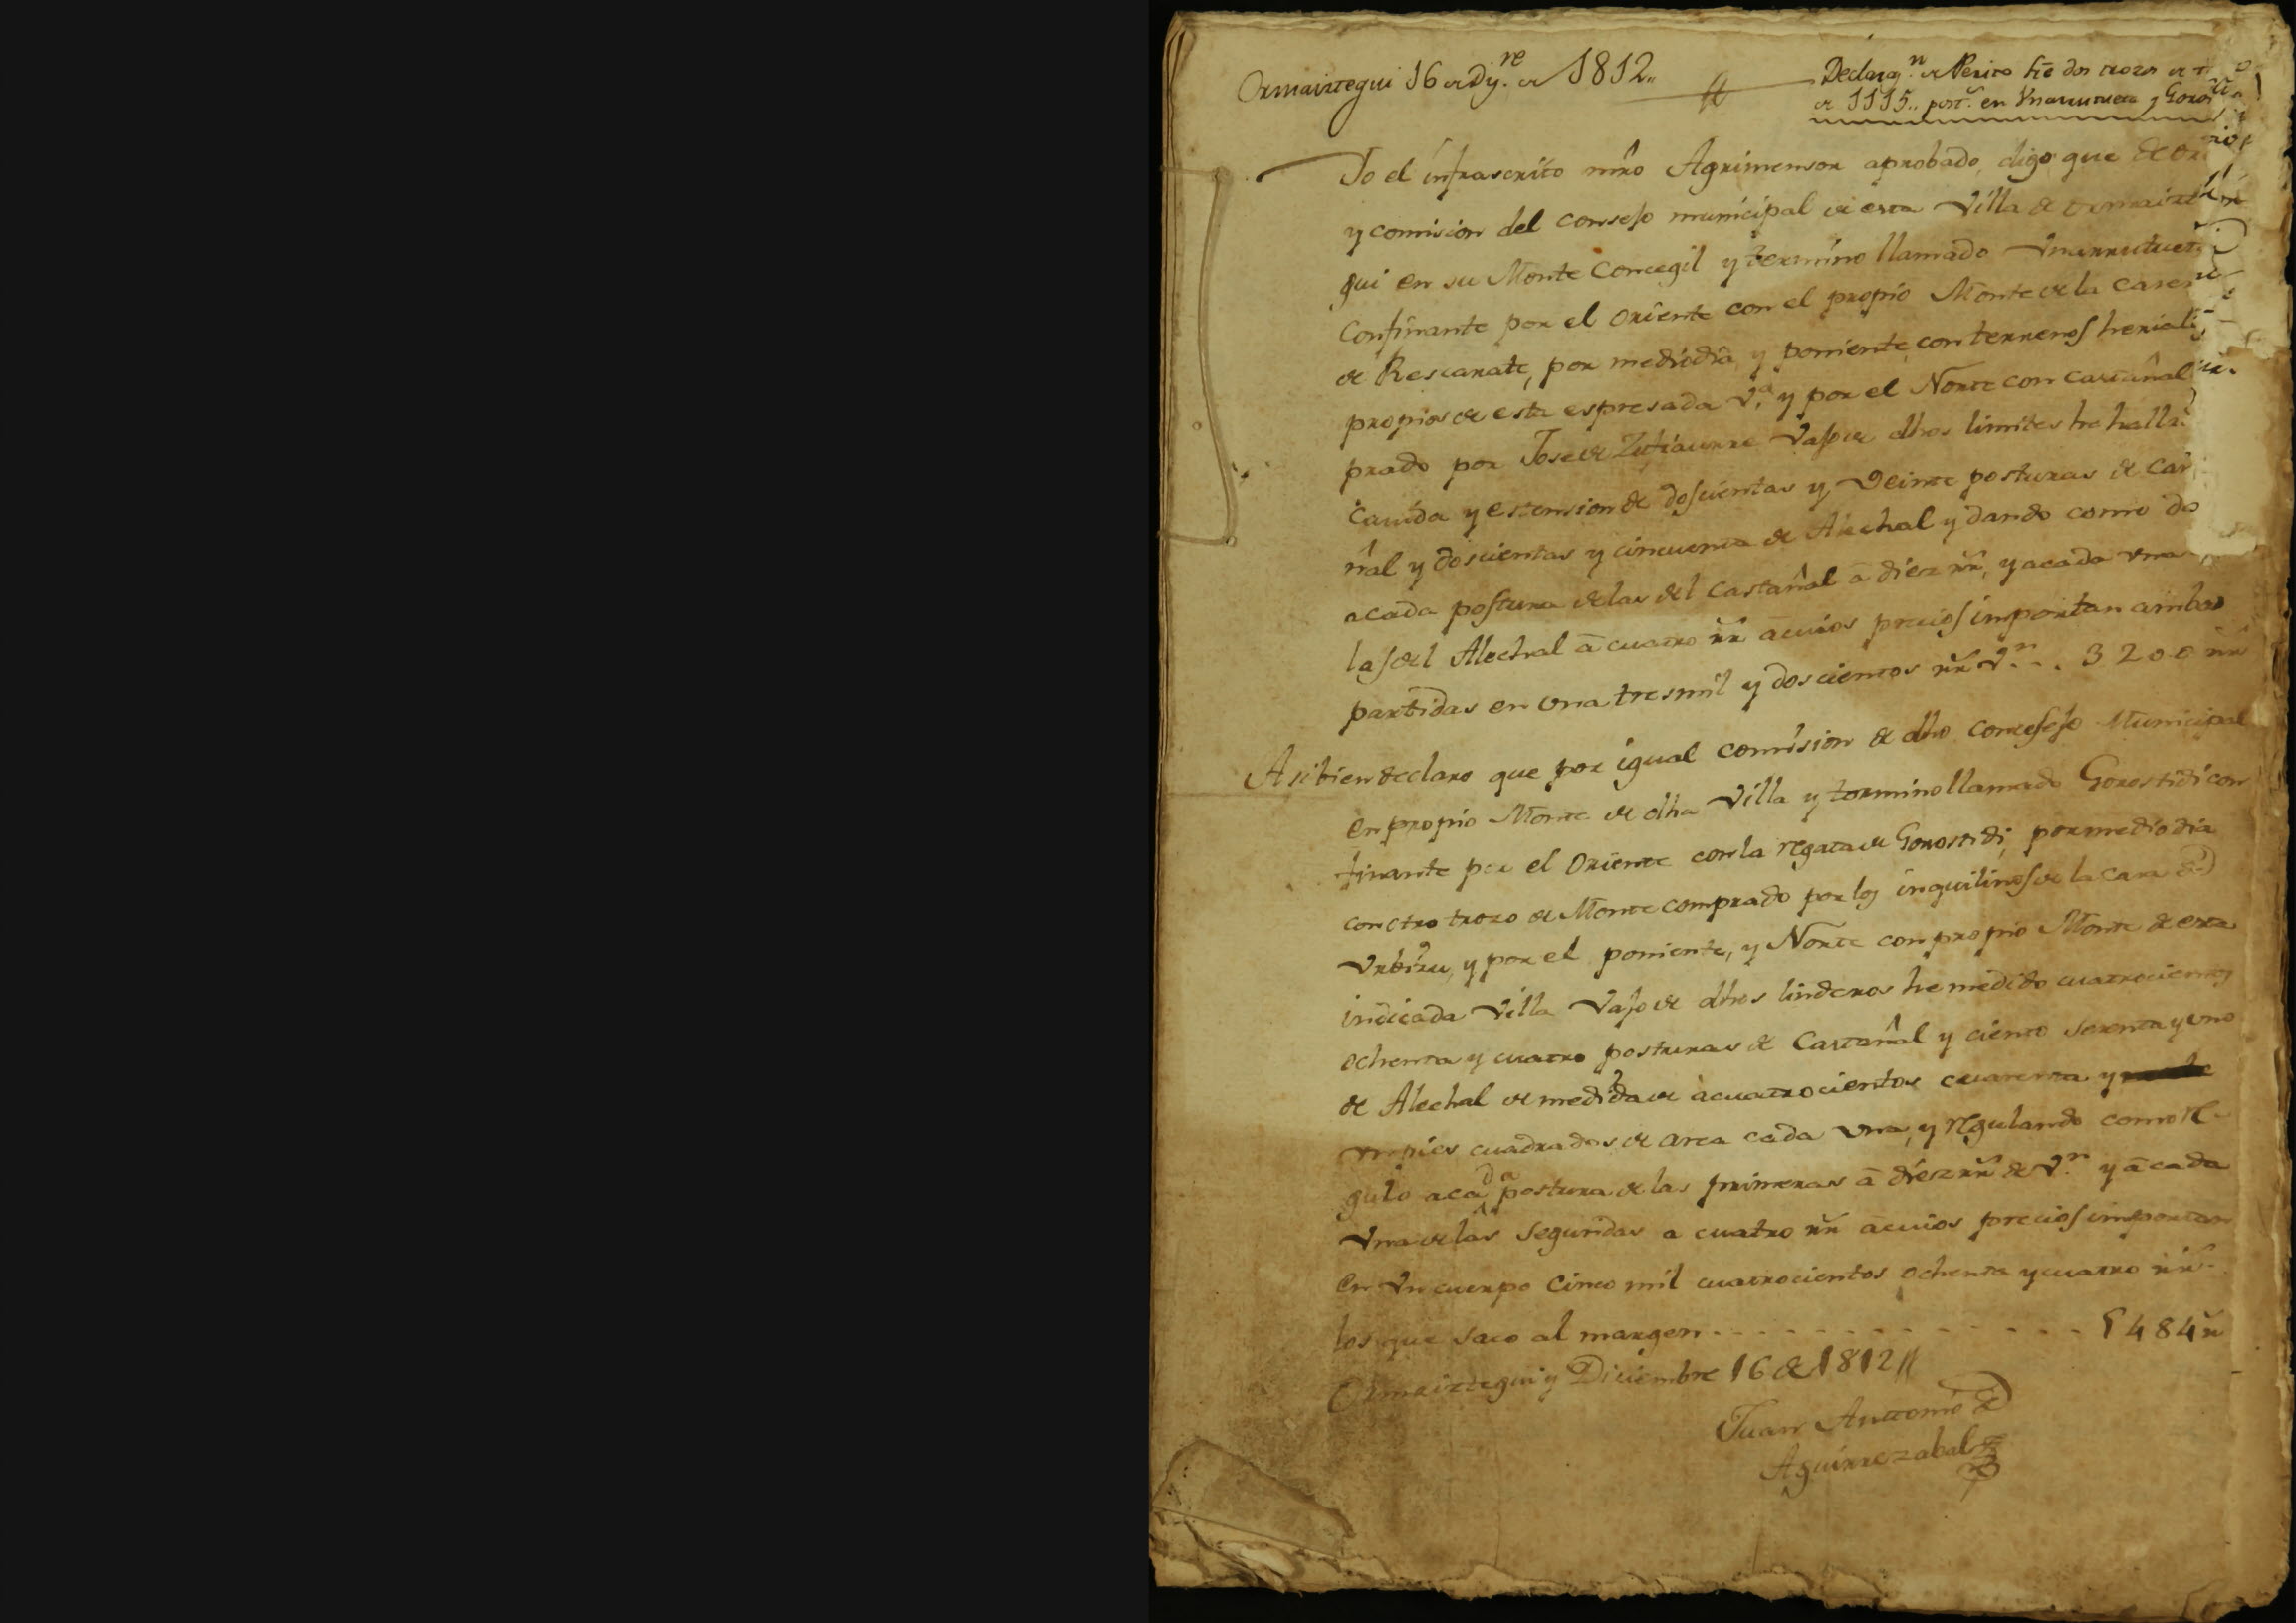 Ormaiztegui 16 de Dij.re de 1812..
Declarаç.n de Perito tre dos trozos de
de 1115.. post.s en Ynarrutueta y Goros
Yo el infrascrito mro Agrimensor aprobado, digo que de or
y comision del consejo municipal de esta Villa de Ormaizte
gui en su Monte Concegil y termino llamado Ynarrutueta
Confinante por el oriente con el propio Monte de la caser
de Rescarate, por mediodia y poniente, con terrenos herial
propios de esta espresada V.a y por el Norte con castañal
prado por Jose de Zufiaurre Vajo de dhos limites he halla
cavida y estension de doscientas y Veinte posturas de Cas
ñal y doscientas y cincuenta de Alechal y dando como do
acada postura de las del Castañal â diez rr̃, y acada una
las del Alechal â cuatro rr̃ âcuios precios importan ambas
partidas en una tresmil y doscientos rr̃ V.n . . 3200 rr̃
Asibien declaro que por igual comision de dho consejo Municipal
en propio Monte de dha Villa y termino llamado Gorostidi con
finante por el Oriente con la regata de Gorostidi, por mediodia
con otro trozo de Monte comprado por los inquilinos de la casa de
Urbizu, y por el poniente, y Norte con propio Monte de esta
indicada Villa Vajo de dhos linderos he medido cuatrocientos
ochenta y cuatro posturas de Castañal y ciento sesenta y uno
de Alechal de medida de acuatrocientos cuarenta y
un pies cuadrados de area cada una, y regulando como re-
gulo acada postura de las primeras â diez rr̃ de V.n y âcada
Una de las Segundas a cuatro rr̃ âcuios precios importan
en Un cuerpo Cinco mil cuatrocientos ochenta y cuatro rr̃
los que saco al margen . . . . . . . . . . . . . 5484 rr̃
Ormaiztegui y Diciembre 16 de 1812 //
Juan Antonio de
Aguirrezabal